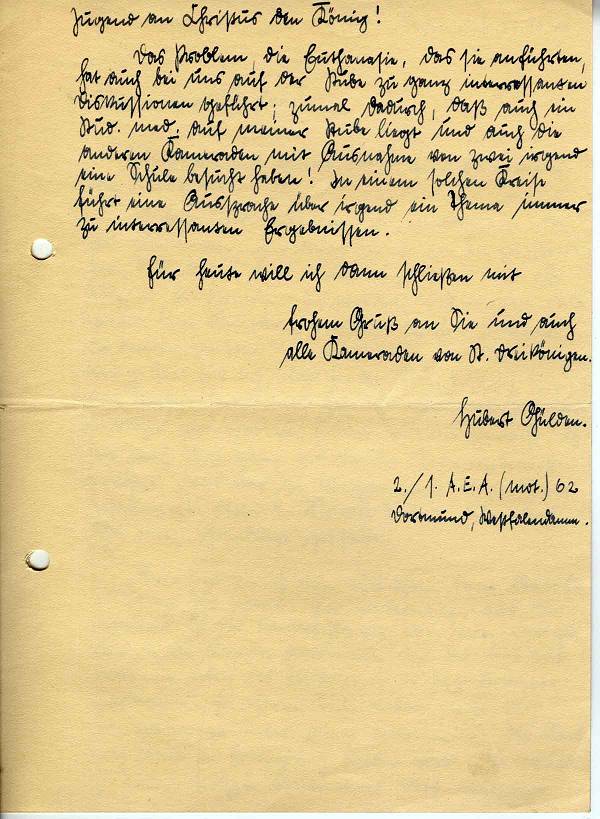 Jugend an Christus den König!
Das Problem, die Euthanasie, das sie anführten,
hat auch bei uns auf der Stube zu ganz interressanten
Diskussionen geführt; zumal dadurch, daß auch ein
Stud. med. auf meiner Stube liegt und auch die
anderen Kameraden mit Ausnahme von zwei irgend
eine Schule besucht haben! In einem solchen Kreise
führt eine Aussprache über irgend ein Thema immer
zu interressanten Ergebnissen.
Für heute will ich dann schließen mit
frohem Gruß an Sie und auch
alle Kameraden von St. Dreikönigen.
Hubert Gülden.
2./1. A.E.A. (mot.) 62
Dortmund, Westfalendamm.